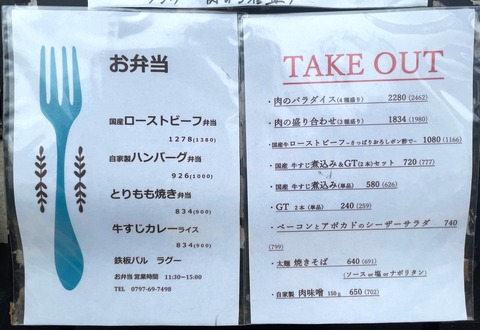 お弁当
国産ローストビーフ弁当
1278(1380)
自家製ハンバーグ弁当
926(1000)
とりもも焼き弁当
834(900)
牛すじカレーライス
834(900)
鉄板バル ラグー
お弁当 営業時間 11:30~15:00
TEL 0797-69-7498
TAKE OUT
・肉のパラダイス(4種盛り) 2280 (2462)
・肉の盛り合わせ(3種盛り) 1834 (1980)
・国産牛ローストビーフ~さっぱりおろしポン酢で~ 1080 (1166)
・国産 牛すじ煮込み&GT(2本)セット 720 (777)
・国産 牛すじ煮込み(単品) 580 (626)
・GT 2本 (単品) 240 (259)
・ベーコンとアボカドのシーザーサラダ 740
(799)
・太麺 焼きそば 640 (691)
(ソース or 塩 or ナポリタン)
・自家製 肉味噌 150g 650 (702)